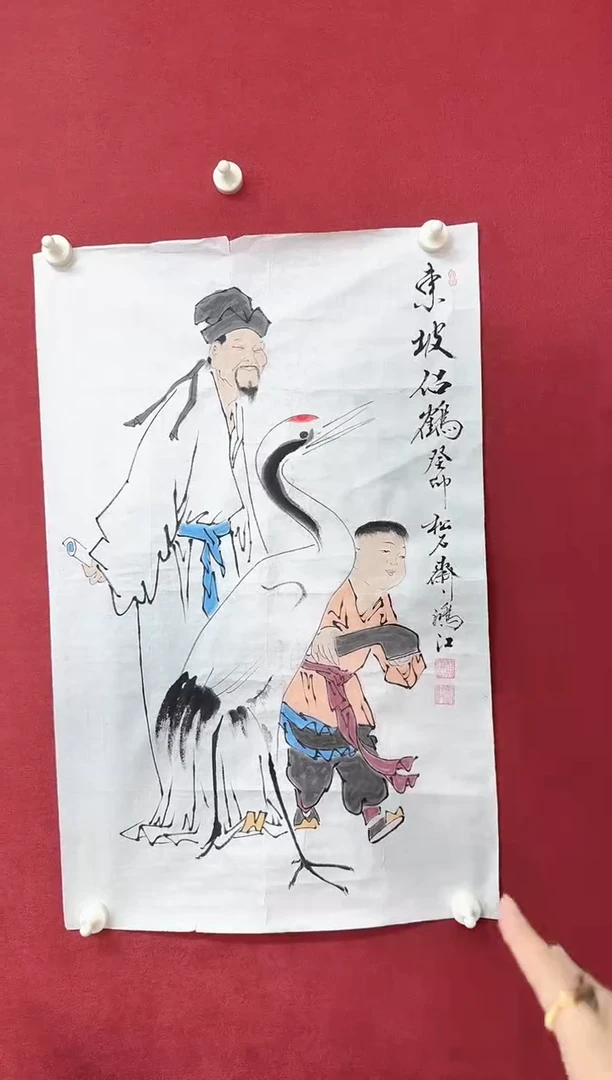 東坡侶鶴癸卯松石齋鴻江